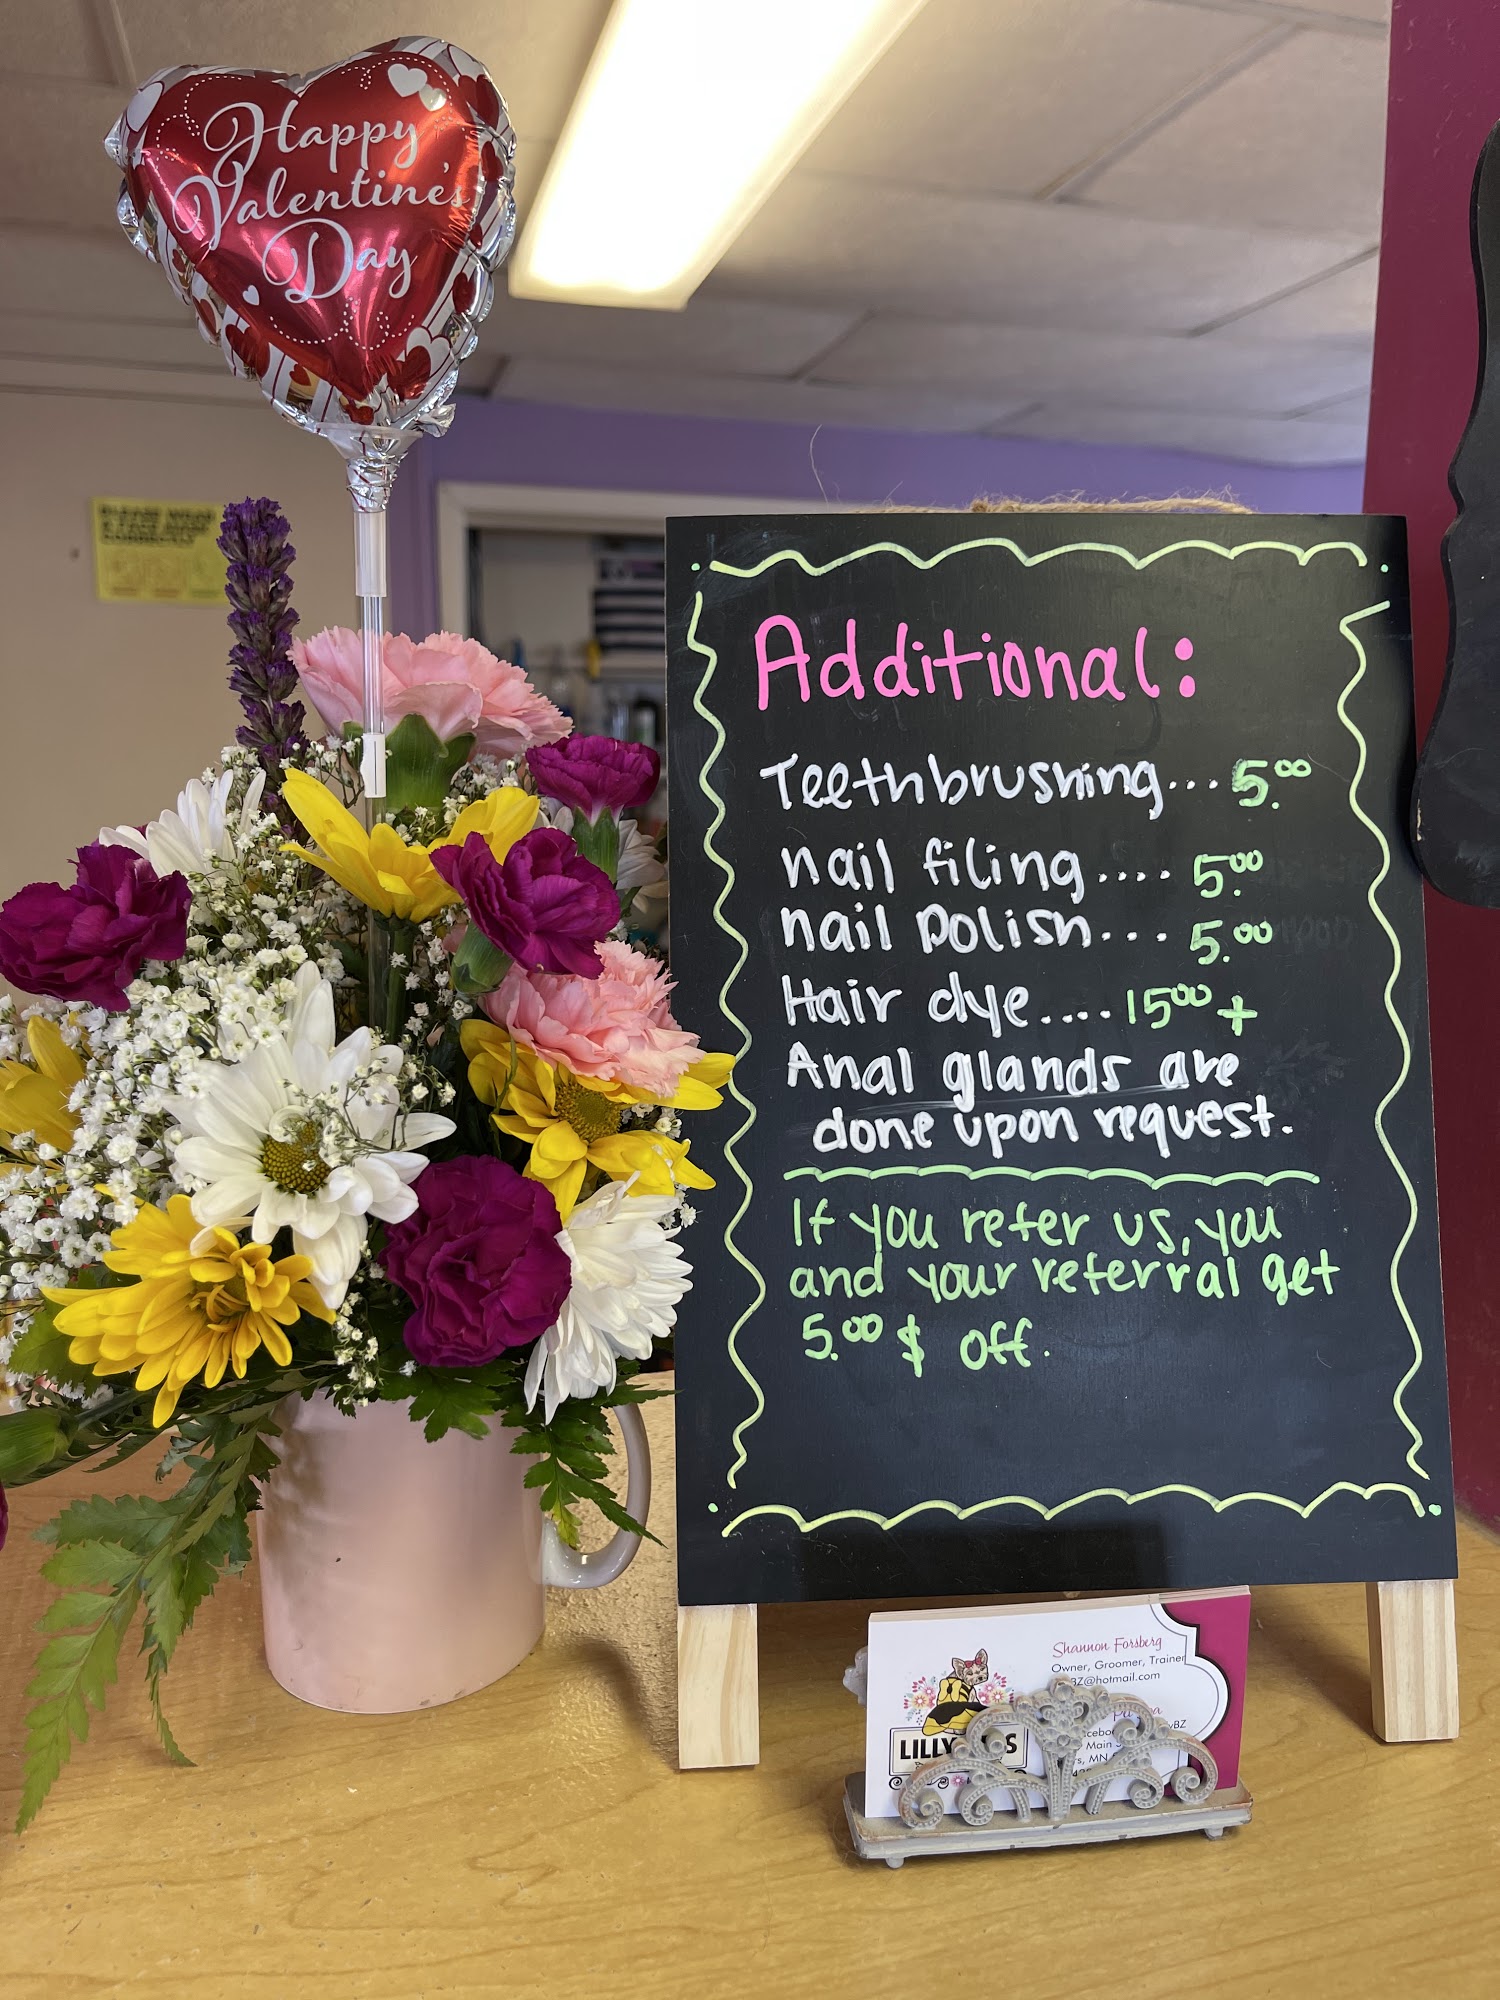 Happy
Valentine's
Day
Additional:
Teethbrushing... 5.00
nail filing.... 5.00
nail polish... 5.00
Hair dye.... 15.00 +
Anal glands are
done upon request.
If you refer us, you
and your referral get
5.00 $ off.
Shannon Forsberg
Owner, Groomer, Trainer
BZ@hotmail.com
Main
MN